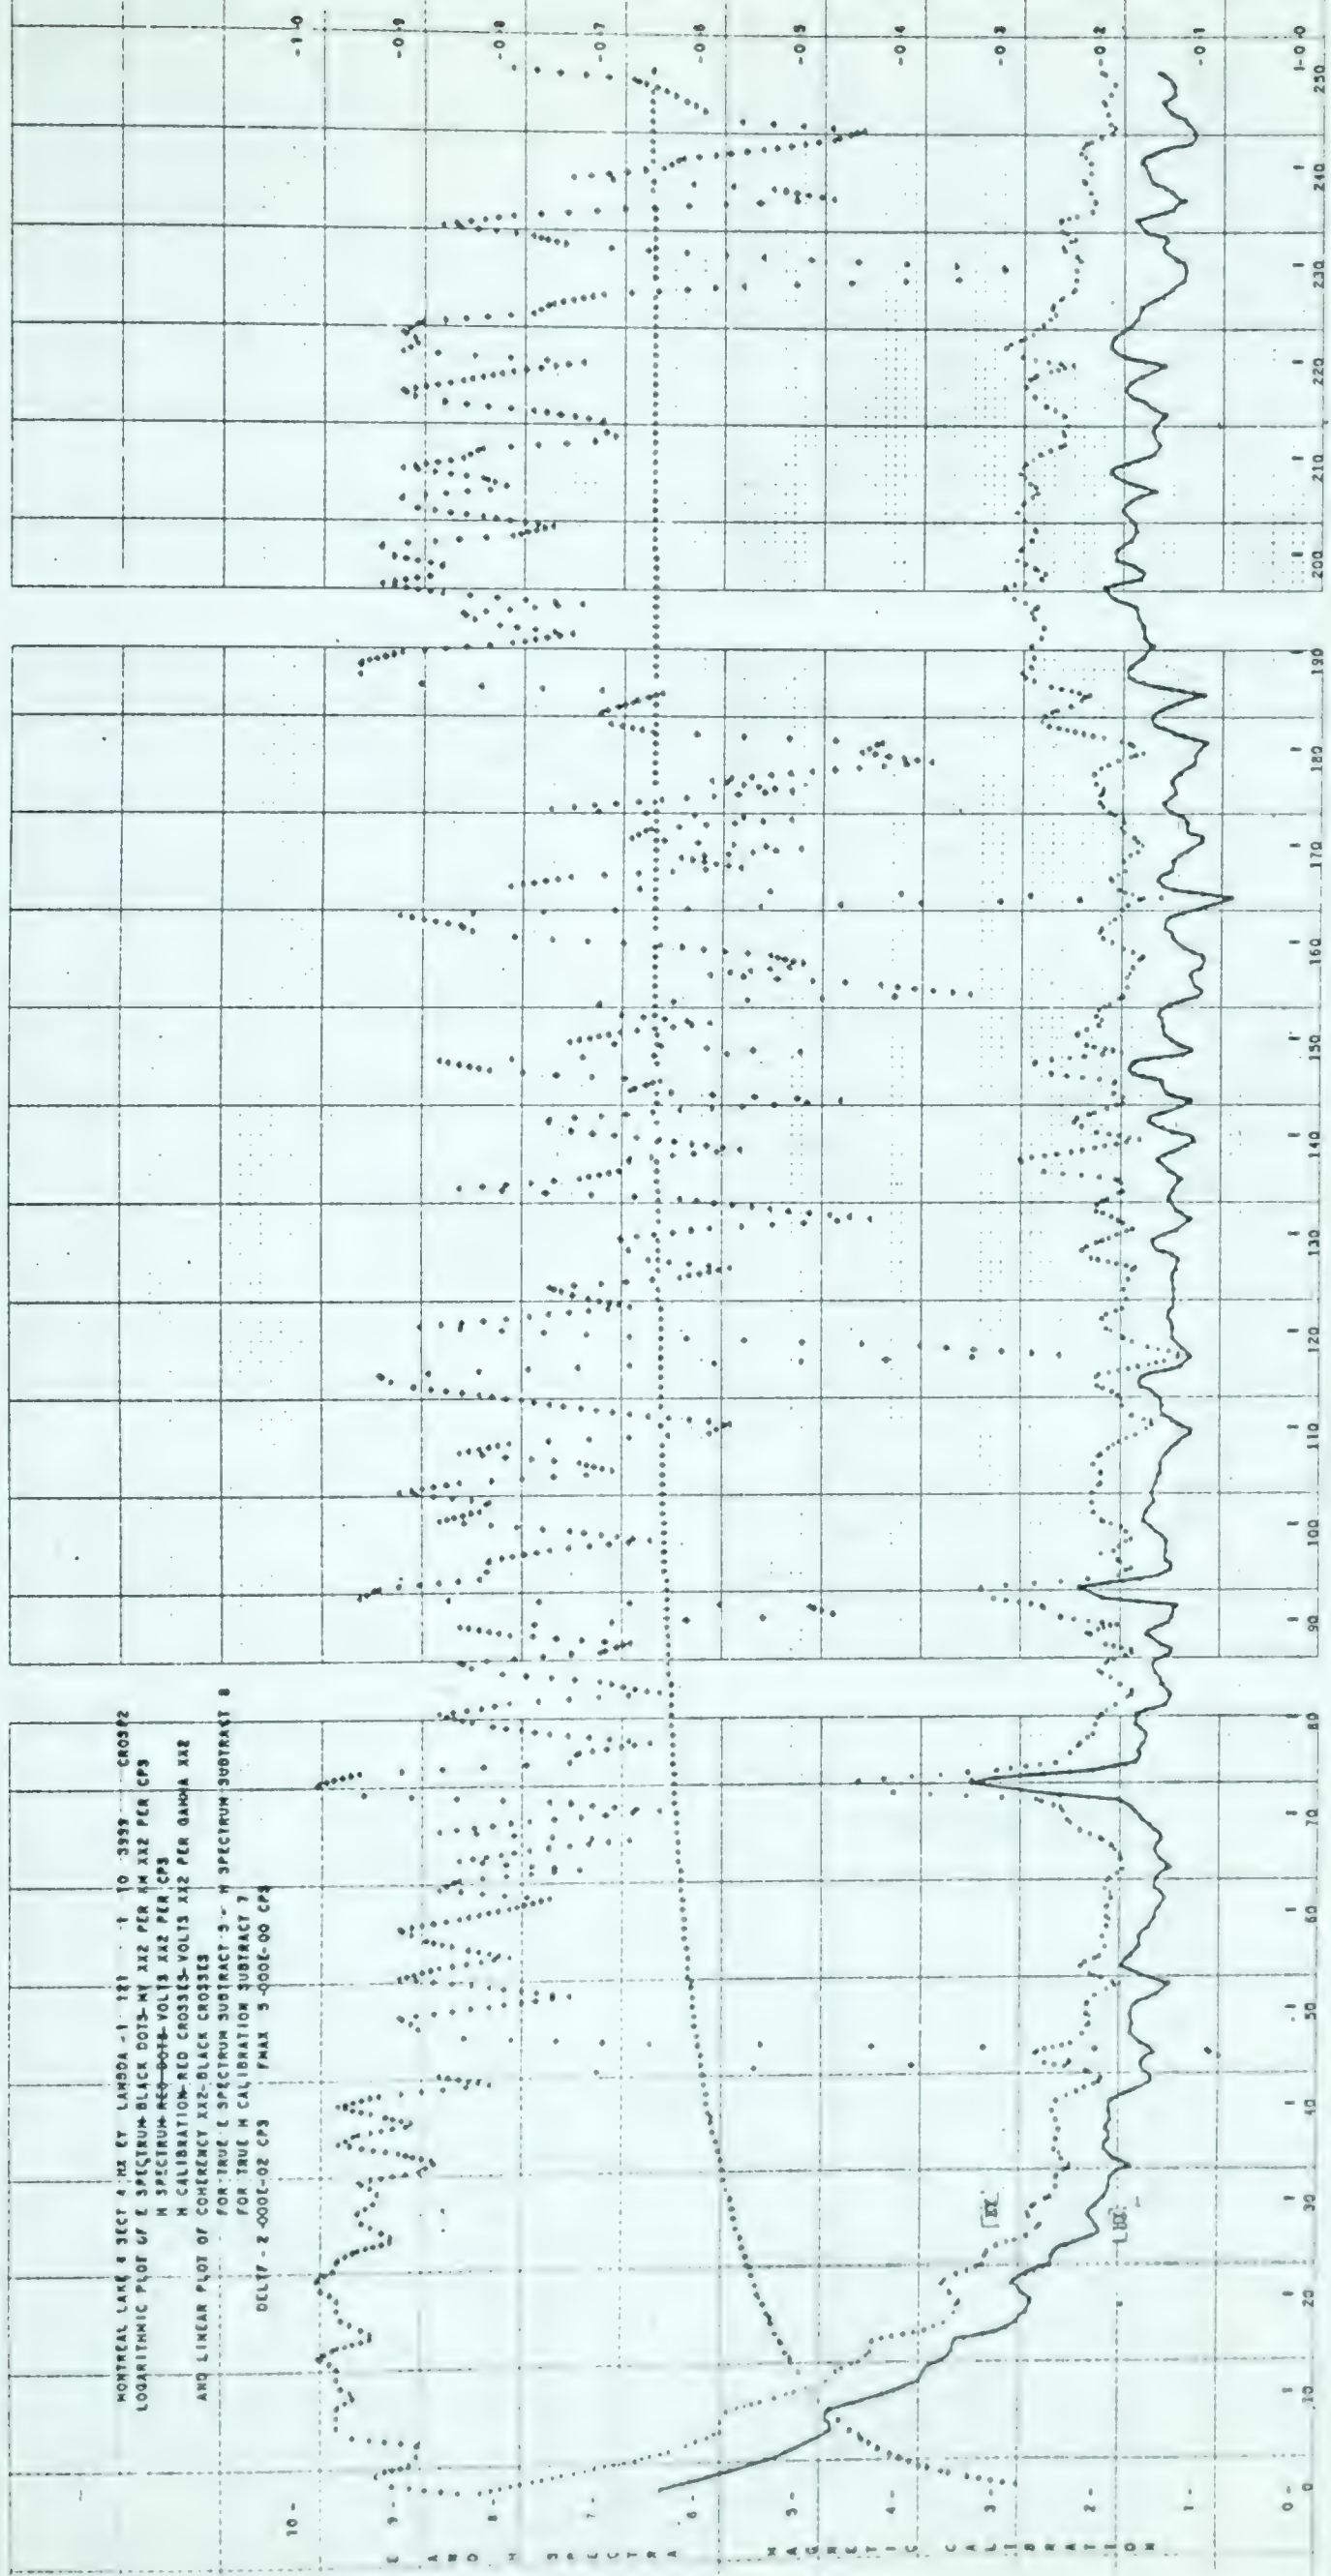 MONTREAL LAKE 4 SECT 4 HX EY LAMBDA -1 121 1 TO 3999 CROSP2
LOGARITHMIC PLOT OF E SPECTRUM BLACK DOTS-MV XX2 PER KM XX2 PER CPS
H SPECTRUM RED DOTS VOLTS XX2 PER CPS
H CALIBRATION-RED CROSSES-VOLTS XX2 PER GAMMA XX2
AND LINEAR PLOT OF COHERENCY XX2-BLACK CROSSES
FOR TRUE E SPECTRUM SUBTRACT 5 - H SPECTRUM SUBTRACT 8
FOR TRUE H CALIBRATION SUBTRACT 7
DELTF - 2.000E-02 CPS FMAX 5.000E-00 CPS
10-
9-
8-
7-
6-
5-
4-
3-
2-
1-
0-
E AND H SPECTRA MAGNETIC CALIBRATION
-1.0
-0.9
-0.8
-0.7
-0.6
-0.5
-0.4
-0.3
-0.2
-0.1
-0.0
EY
HX
0 10 20 30 40 50 60 70 80 90 100 110 120 130 140 150 160 170 180 190 200 210 220 230 240 250